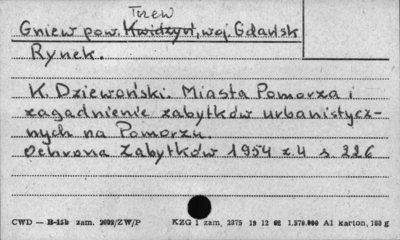 Tczew
Gniew pow. Kwidzyń, woj. Gdańsk
Rynek.
K. Dziewoński. Miasta Pomorza i
zagadnienie zabytków urbanistycz-
nych na Pomorzu.
Ochrona Zabytków 1954 z.4 s. 226
CWD — B-15b zam. 2092/ZW/P KZG 1 zam, 2375 19 12 62 1.570.000 A1 karton, 180 g